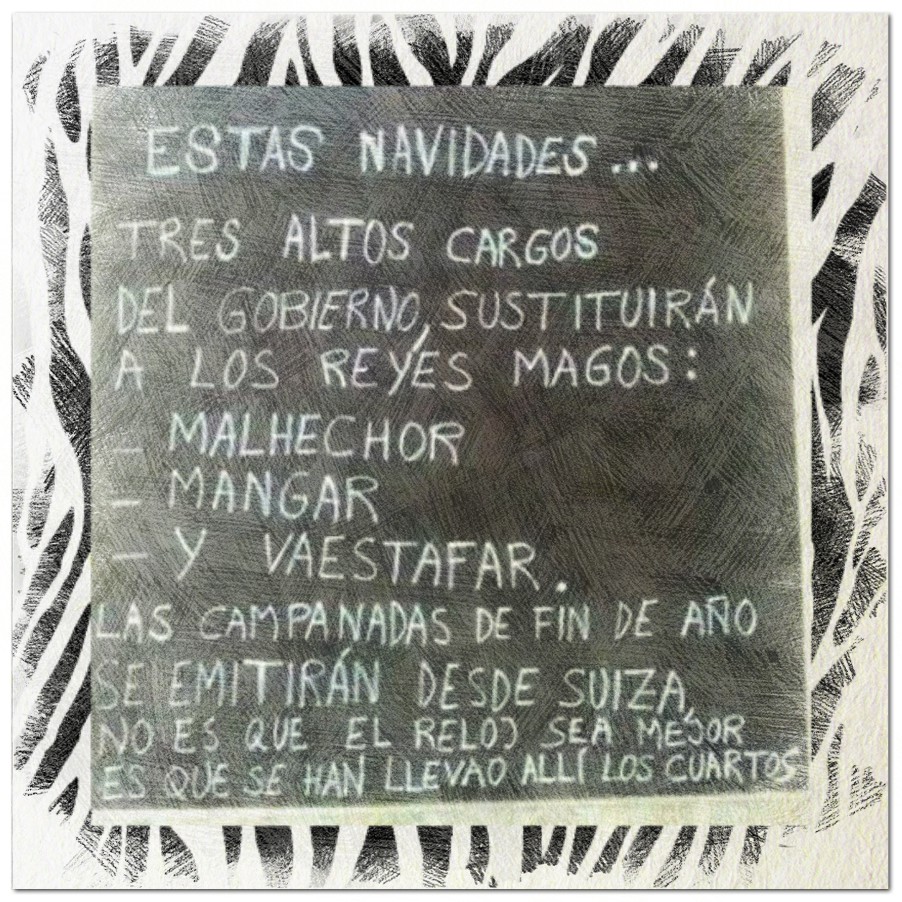 ESTAS NAVIDADES...
TRES ALTOS CARGOS
DEL GOBIERNO, SUSTITUIRÁN
A LOS REYES MAGOS:
MALHECHOR
- MANGAR
- Y VAESTAFAR.
LAS CAMPANADAS DE FIN DE AÑO
SE EMITIRÁN DESDE SUIZA,
NO ES QUE EL RELOJ SEA MEJOR
ES QUE SE HAN LLEVAO ALLÍ LOS CUARTOS